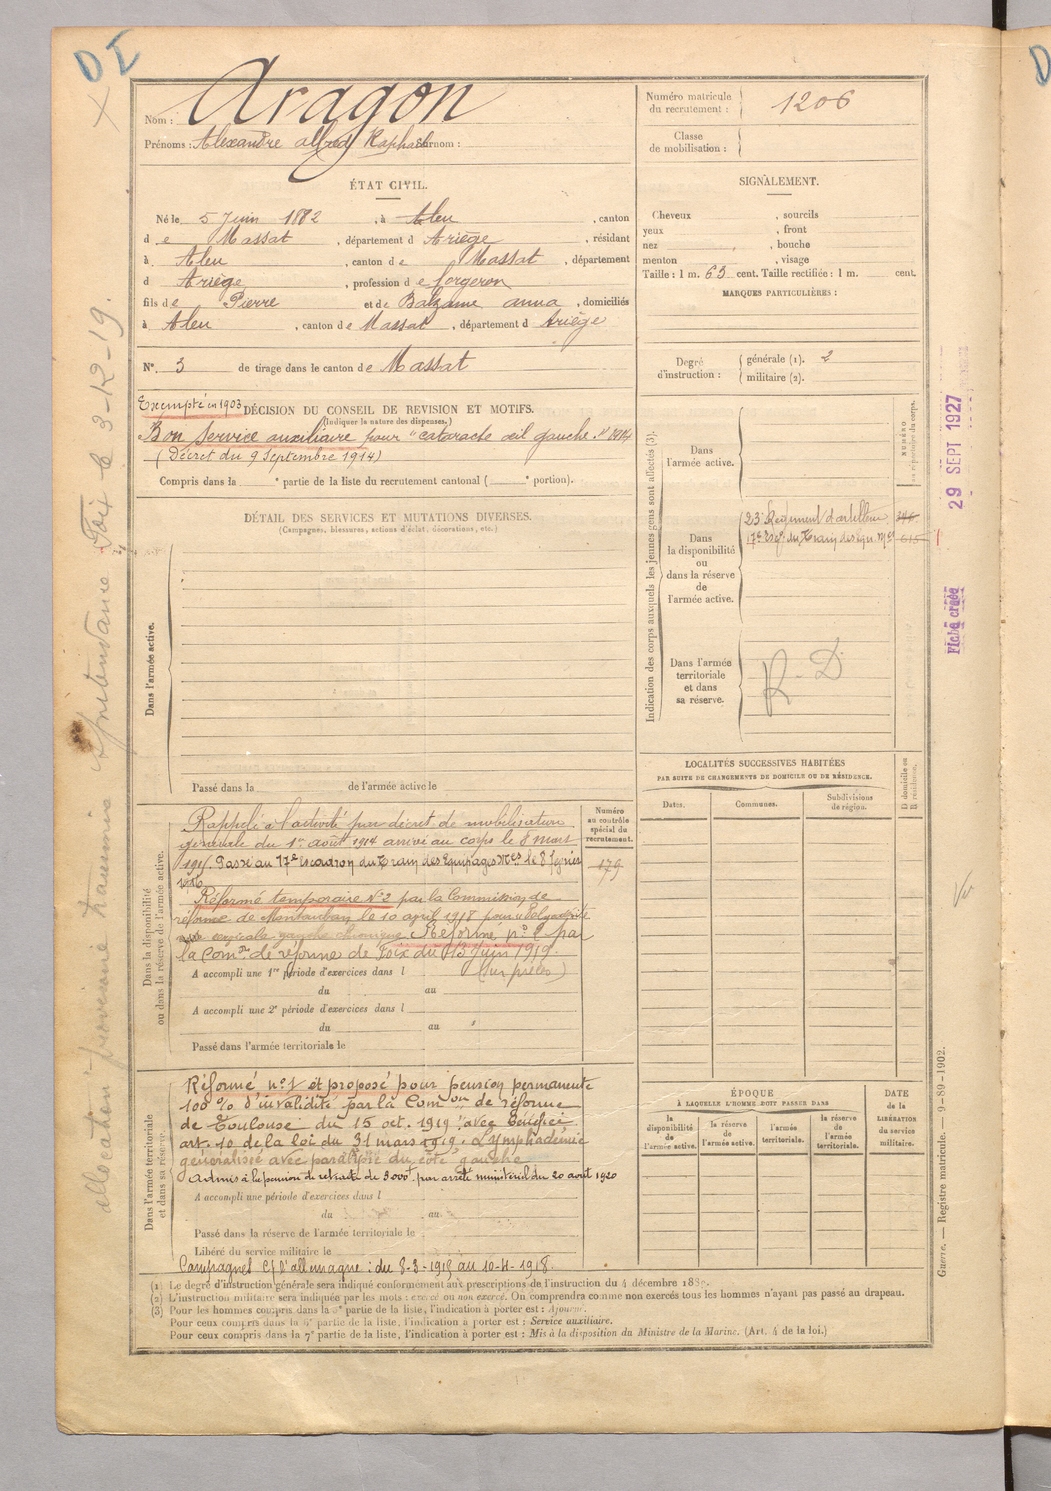 DI
Nom : Aragon
Prénoms : Alexandre alfred Raphaël Surnom :
ÉTAT CIVIL.
Né le 5 Juin 1882, à Aleu, canton
d e Massat, département d Ariège, résidant
à Aleu, canton de Massat, département
d Ariège, profession de forgeron
fils de Pierre et de Balzame anna, domiciliés
à Aleu, canton de Massat, département d Ariège
N° 3 de tirage dans le canton de Massat
Exempté en 1903 DÉCISION DU CONSEIL DE REVISION ET MOTIFS.
(Indiquer la nature des dispenses.)
Bon service auxiliaire pour "cataracte œil gauche." 1914
(Décret du 9 Septembre 1914)
Compris dans la e partie de la liste du recrutement cantonal ( e portion).
DÉTAIL DES SERVICES ET MUTATIONS DIVERSES.
(Campagnes, blessures, actions d'éclat, décorations, etc.)
Dans l'armée active.
Passé dans la de l'armée active le
Dans la disponibilité
ou dans la réserve de l'armée active.
Rappelé à l'activité par décret de mobilisation
générale du 1er août 1914 arrivé au corps le 8 mars
1915. Passé au 17e Escadron du Train des Equipages Mres le 8 février
1916
Réformé temporaire N°2 par la Commission de
réforme de Montauban le 10 april 1918 pour
cervicale gauche chronique Réformé n° 2 par
la Comon de réforme de Foix du 13 Juin 1919.
A accompli une 1re période d'exercices dans l (sur pièces)
du au
A accompli une 2e période d'exercices dans l
du au
Passé dans l'armée territoriale le
Numéro
au contrôle
spécial du
recrutement.
179
Dans l'armée territoriale
et dans sa réserve.
Réformé n°1 et proposé pour pension permanente
100 % d'invalidité par la Comon de réforme
de Toulouse du 15 oct. 1919 "avec bénéfice
art. 10 de la loi du 31 mars 1919. Lymphadénie
généralisée avec paralysie du côté gauche
Admis à la pension de retraite de 3000f par arrêté ministériel du 20 août 1920
A accompli une période d'exercices dans l
du au
Passé dans la réserve de l'armée territoriale le
Libéré du service militaire le
Campagnes c/ l'allemagne : du 8-3-1915 au 10-4-1918.
Numéro matricule
du recrutement : 1206
Classe
de mobilisation :
SIGNALEMENT.
Cheveux, sourcils
yeux, front
nez, bouche
menton, visage
Taille : 1 m. 63 cent. Taille rectifiée : 1 m. cent.
MARQUES PARTICULIÈRES :
Degré
d'instruction :
générale (1). 2
militaire (2).
Indication des corps auxquels les jeunes gens sont affectés (3).
NUMÉRO
au répertoire du corps.
Dans
l'armée active.
Dans
la disponibilité
ou
dans la réserve
de
l'armée active.
23e Régiment d'artillerie 346
17e Esc. du Train des équ. Mres 615
Dans l'armée
territoriale
et dans
sa réserve.
R. D
LOCALITÉS SUCCESSIVES HABITÉES
PAR SUITE DE CHANGEMENTS DE DOMICILE OU DE RÉSIDENCE.
Dates.
Communes.
Subdivisions
de région.
D domicile ou
R résidence.
ÉPOQUE
À LAQUELLE L'HOMME DOIT PASSER DANS
la
disponibilité
de
l'armée active.
la réserve
de
l'armée active.
l'armée
territoriale.
la réserve
de
l'armée
territoriale.
DATE
de la
LIBÉRATION
du service
militaire.
(1) Le degré d'instruction générale sera indiqué conformément aux prescriptions de l'instruction du 4 décembre 1889.
(2) L'instruction militaire sera indiquée par les mots : exercé ou non exercé. On comprendra comme non exercés tous les hommes n'ayant pas passé au drapeau.
(3) Pour les hommes compris dans la 5e partie de la liste, l'indication à porter est : Ajourné.
Pour ceux compris dans la 6e partie de la liste, l'indication à porter est : Service auxiliaire.
Pour ceux compris dans la 7e partie de la liste, l'indication à porter est : Mis à la disposition du Ministre de la Marine. (Art. 4 de la loi.)
allocation provisoire transmis Intendance Foix le 3-12-19.
29 SEPT 1927
Fiche créée
Vu
Guerre. — Registre matricule. — 9-89-1902.